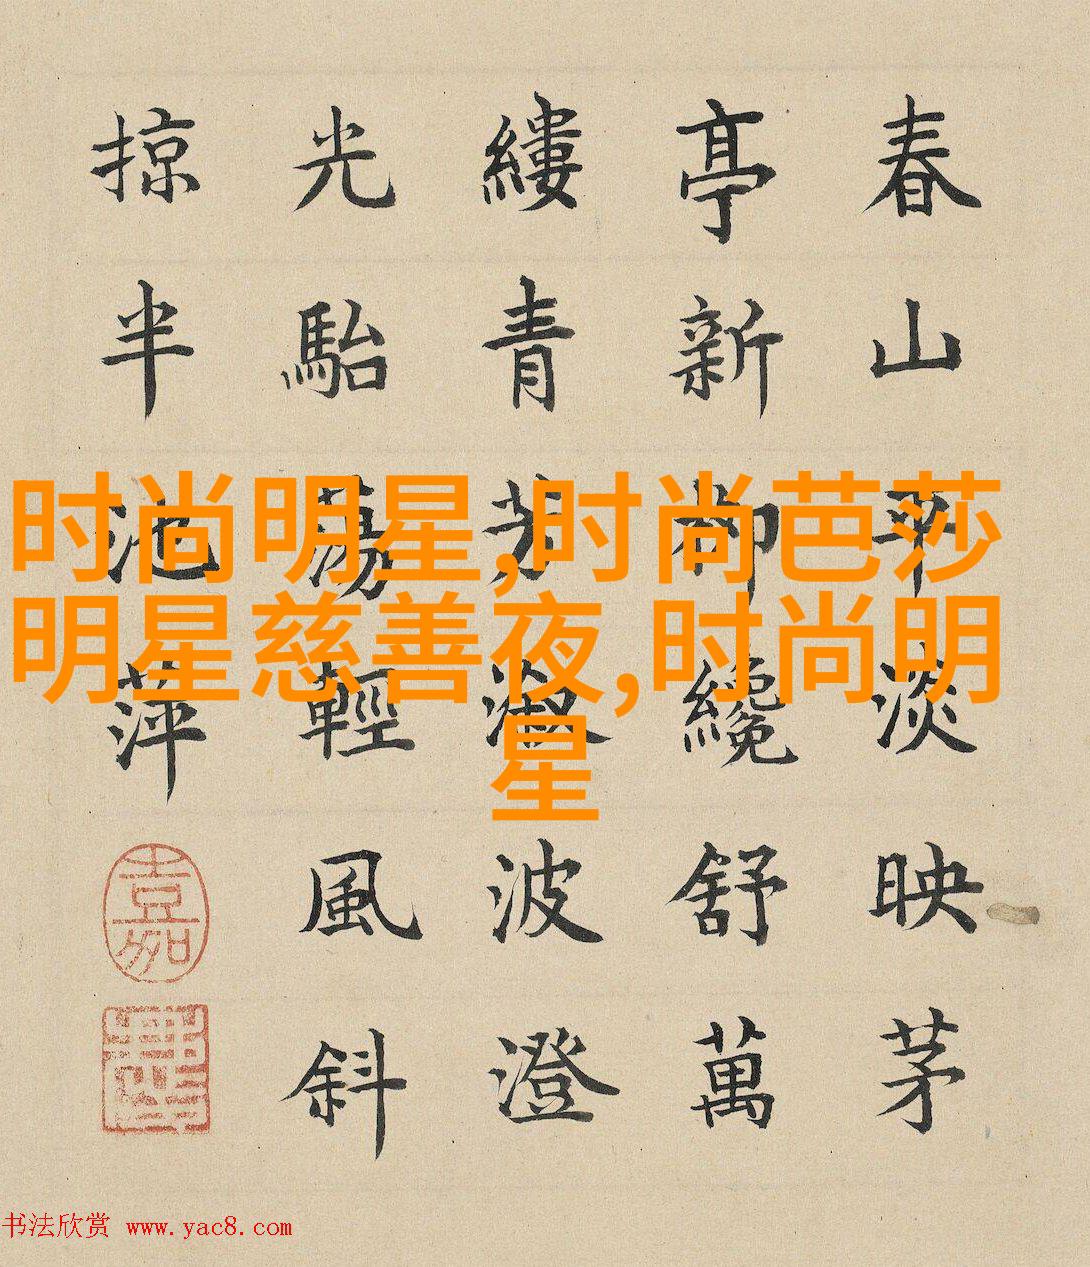 春山平淡映茅
亭新柳纔舒萬
縷青芳淑波澄
光駘蕩輕風斜
掠半池萍
嘉
时尚明星,时尚芭莎
明星慈善夜,时尚明
星
书法欣赏 www.yac8.com